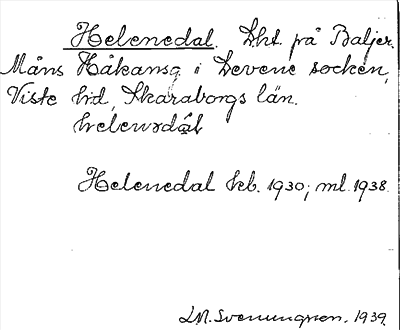 Helenedal. Lht. på Baljer.
Måns Håkansg. i Levene socken,
Viste hd, Skaraborgs län.
Helenedal kb. 1930; ml. 1938.
L.M. Svenungsson. 1939.